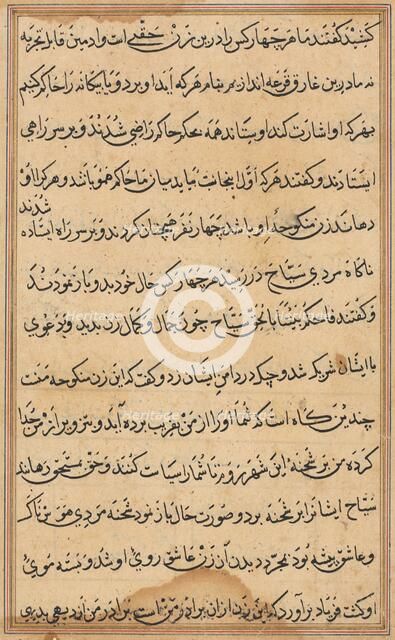 گفتند ما هر چهار کس را درین زن حقّی است و ادمین قابل تجربه
نه ما درین غار و قرعه اندازیم بنام هرکه آید او برد و یا بیکانه را حاکم کنیم
بهرکه او اشارت کند او ستاند همه بحکم حاکم راضی شدند و بر سر راهی
ایستادند و گفتند هرکه اوّل ازینجانب بیاید میان ما حاکم همو باشد و هرکرا او
دهاند زن منکوحهٔ او باشد چهار نفر همچنان کردند و بر سر راه ایستاده شدند
ناکاه مردی سیّاح در رسید هر چهار کس حال خود بدو باز نمودند
و کفتند فاحکم بیننا بالحق سیّاح چون جمال و کمال زن بدید و بدعوی
با ایشان شریک شد و چنک در دامن ایشان زد و کفت که این زن منکوحه منست
چندین کاه است که شما او را از من بفریب برده آید و از من جدا
کرده من بر شحنهٔ این شهر روم تا شما را سیاست کنند و حق بمستحق رهانند
سیّاح ایشانرا بر شحنه برد و صورت حال باز نمود شحنه مردی هوس ناک
و عاشق پیشه بود بمجرّد دیدن آن زن عاشق روی او شد و بسته موی
او کشت فریاد برآورد که این زن از ان برادر من است برادر من از دیهی بدیهی
Heritage